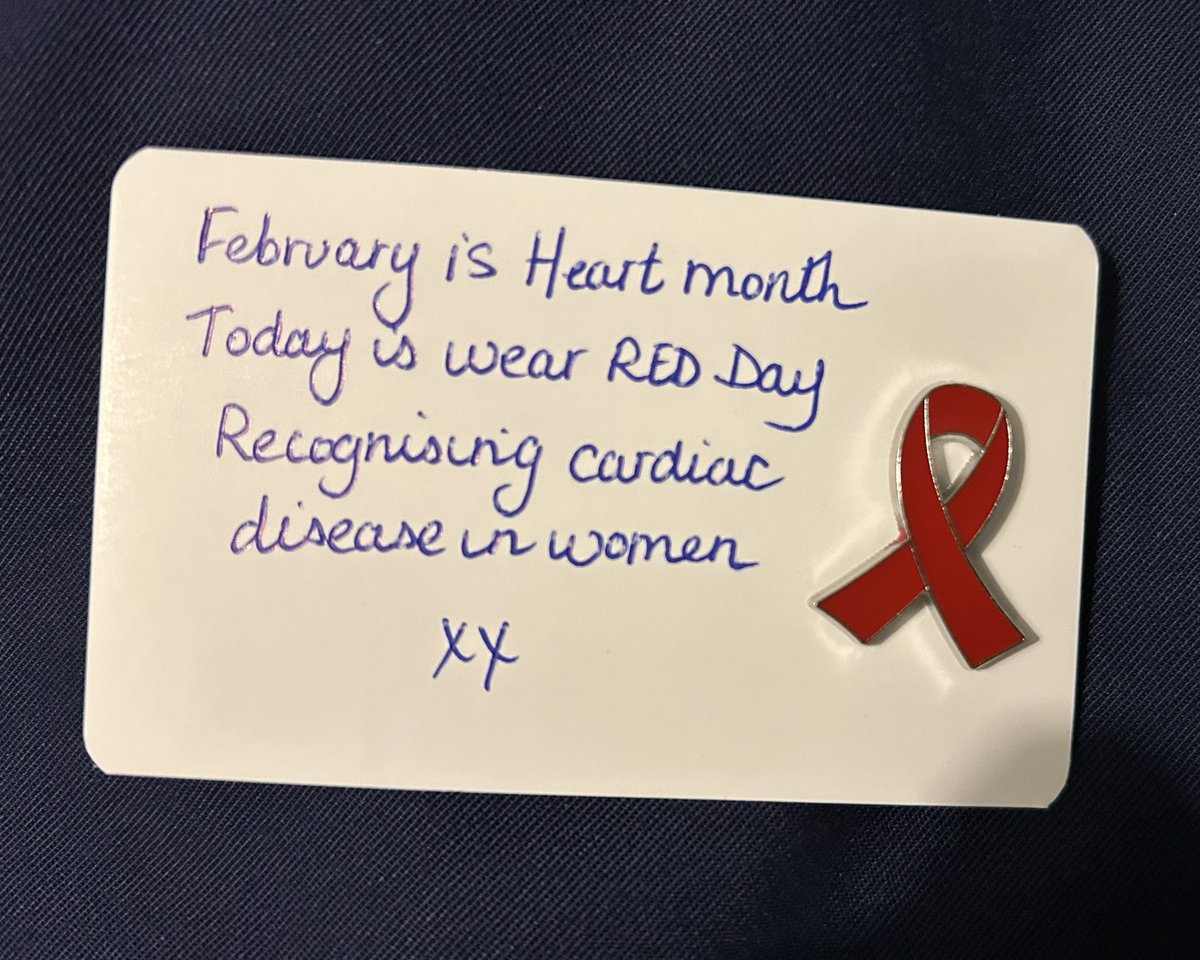 February is Heart month
Today is wear RED Day
Recognising cardiac
disease in women
xx